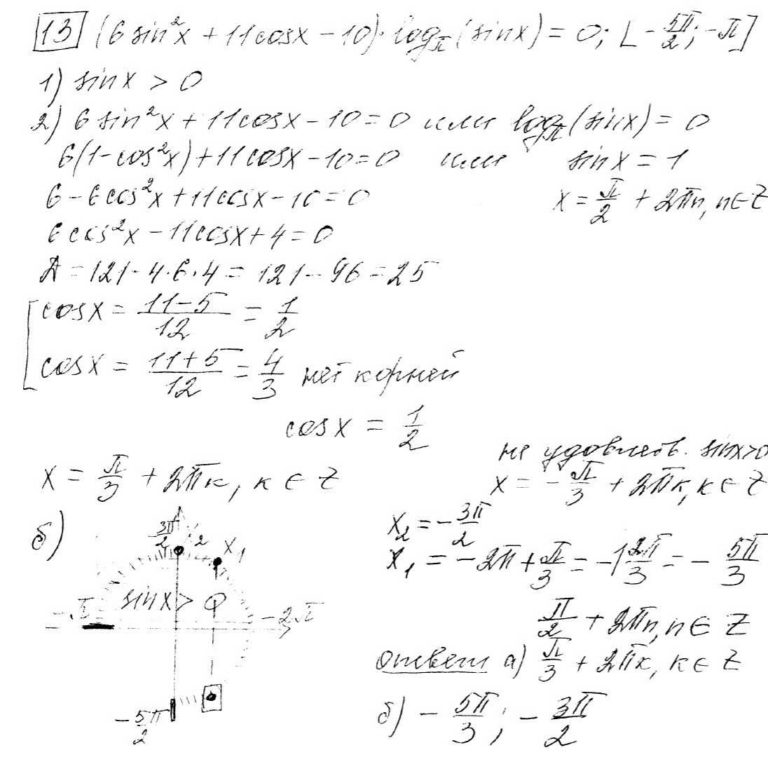 13 (6 sin²x + 11cosx - 10)·log_π(sinx) = 0; [-5π/2; -π]
1) sinx > 0
2) 6 sin²x + 11cosx - 10 = 0 или log_π(sinx) = 0
6(1-cos²x) + 11cosx - 10 = 0 или sinx = 1
6 - 6cos²x + 11cosx - 10 = 0 x = π/2 + 2πn, n ∈ Z
6cos²x - 11cosx + 4 = 0
Д = 121 - 4·6·4 = 121 - 96 = 25
cosx = (11-5)/12 = 1/2
cosx = (11+5)/12 = 4/3 нет корней
cosx = 1/2
не удовлетв. sinx>0
x = π/3 + 2πк, к ∈ Z x = -π/3 + 2πк, к ∈ Z
б)
3π/2 x₂ x₁
-π sinx > 0 -2π
-5π/2
x₂ = -3π/2
x₁ = -2π + π/3 = -1 2π/3 = -5π/3
π/2 + 2πn, n ∈ Z
ответ а) π/3 + 2πк, к ∈ Z
б) -5π/3; -3π/2